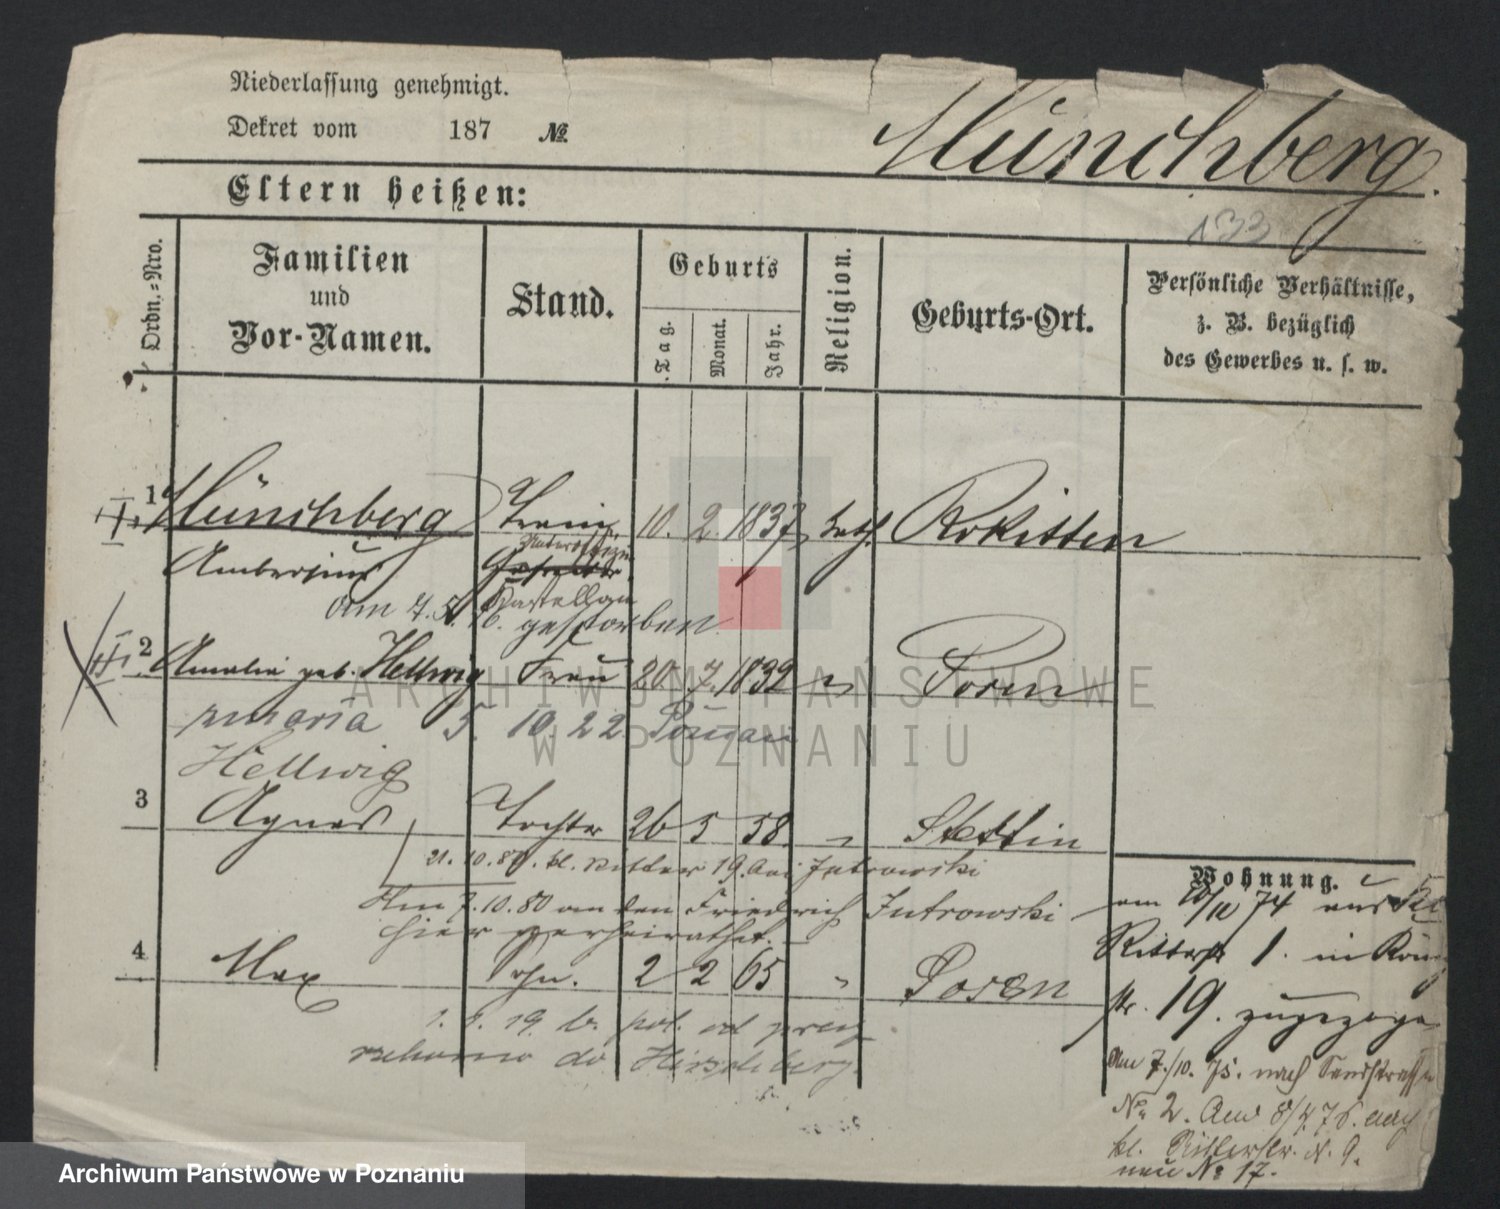 Niederlassung genehmigt.
Dekret vom 187 №
Münchberg.
Eltern heißen:
133
Ordn.-Nro.
Familien und Vor-Namen.
Stand.
Geburts
Tag.
Monat.
Jahr.
Religion.
Geburts-Ort.
Persönliche Verhältnisse,
z. B. bezüglich
des Gewerbes u. s. w.
1 Münchberg 10. 2. 1837 kath. Rokitten
I.
Ambrosius
Kastellan
am 7. gestorben
2 Amalie geb. Hellwig Frau 20. 7. 1832 " Posen
II.
maria 5. 10. 22. Poznań
Hellwig
3 Agnes Tochter 26 5 58. " Stettin
21. 10. 80. kl. Ritter 19. bei Jutrowski
Am 7. 10. 80 an den Friedrich Jutrowski
hier verheirathet.
4 Max Sohn. 2 2 65 " Posen
1. 19 b. pol. od
do Hirschberg.
Wohnung.
am 10/10 74 aus
Ritterstr 1. in
str. 19. zugezogen
Am 7./10. 75. nach Sandstrasse
No 2. Am 8/4 76. nach
kl. Ritterstr. N. 9.
neu No 17.
ARCHIWUM PAŃSTWOWE
W POZNANIU
Archiwum Państwowe w Poznaniu